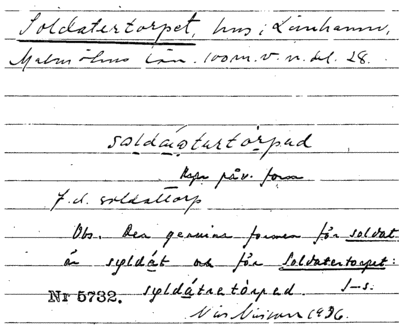 Soldatertorpet, hus i Limhamn,
Malmöhus län. 100 m. v. n. del. 28.
soldáətərtòrpəd
Repr påv. form
F. d. soldattorp
Obs. Den genuina formen för soldat
är syldát och för Soldatertorpet:
Nr 5732. syldátretòrpəd. I-s.
Nils Nilsson 1936.